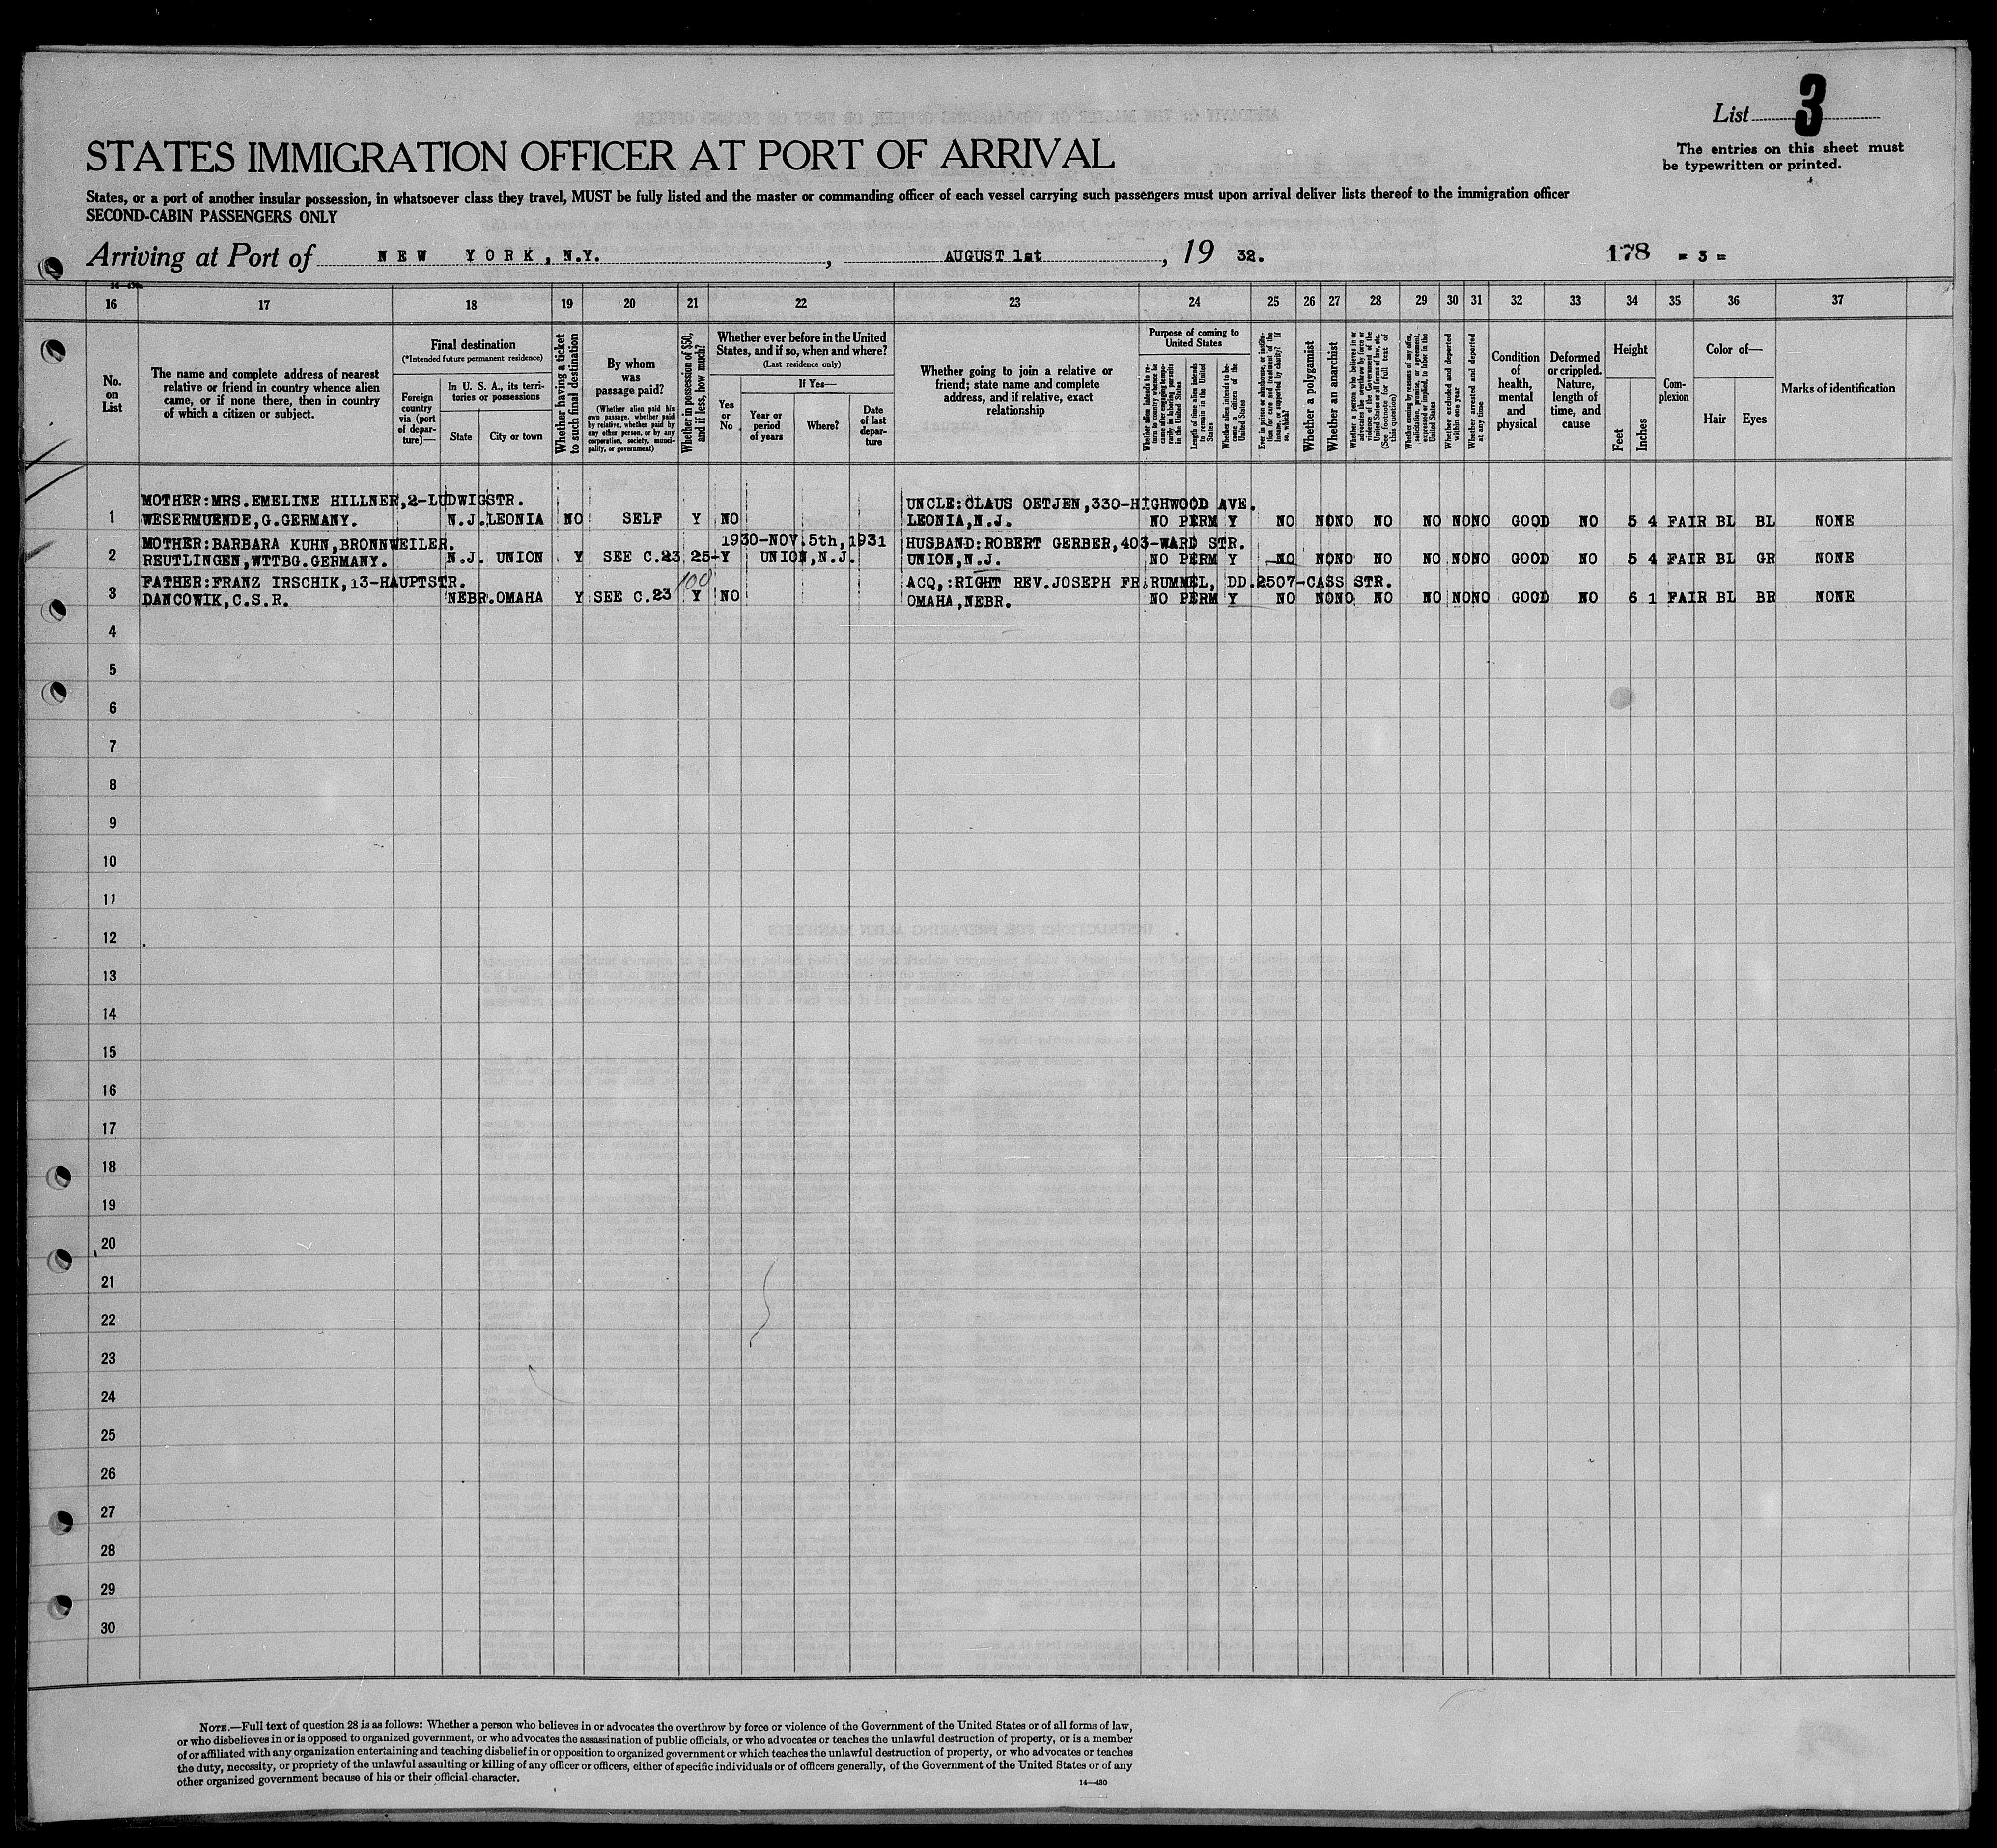 List 3
The entries on this sheet must
be typewritten or printed.
STATES IMMIGRATION OFFICER AT PORT OF ARRIVAL
States, or a port of another insular possession, in whatsoever class they travel, MUST be fully listed and the master or commanding officer of each vessel carrying such passengers must upon arrival deliver lists thereof to the immigration officer
SECOND-CABIN PASSENGERS ONLY
Arriving at Port of NEW YORK, N.Y., AUGUST 1st, 19 32. 178 = 3 =
16 17 18 19 20 21 22 23 24 25 26 27 28 29 30 31 32 33 34 35 36 37
No. on List
The name and complete address of nearest relative or friend in country whence alien came, or if none there, then in country of which a citizen or subject.
Final destination
(*Intended future permanent residence)
Foreign country via (port of departure)—
In U. S. A., its territories or possessions
State
City or town
Whether having a ticket to such final destination
By whom was passage paid?
(Whether alien paid his own passage, whether paid by relative, whether paid by any other person, or by any corporation, society, municipality, or government)
Whether in possession of $50, and if less, how much?
Whether ever before in the United States, and if so, when and where?
(Last residence only)
Yes or No
If Yes—
Year or period of years
Where?
Date of last departure
Whether going to join a relative or friend; state name and complete address, and if relative, exact relationship
Purpose of coming to United States
Whether alien intends to return to country whence he came after engaging temporarily in laboring pursuits in the United States
Length of time alien intends to remain in the United States
Whether alien intends to become a citizen of the United States
Ever in prison or almshouse, or institution for care and treatment of the insane, or supported by charity? If so, which?
Whether a polygamist
Whether an anarchist
Whether a person who believes in or advocates the overthrow by force or violence of the Government of the United States or all forms of law, etc. (See footnote for full text of this question)
Whether coming by reasons of any offer, solicitation, promise, or agreement, expressed or implied, to labor in the United States
Whether excluded and deported within one year
Whether arrested and deported at any time
Condition of health, mental and physical
Deformed or crippled. Nature, length of time, and cause
Height
Feet
Inches
Complexion
Color of—
Hair
Eyes
Marks of identification
MOTHER:MRS.EMELINE HILLNER,2-LUDWIGSTR. UNCLE:CLAUS OETJEN,330-HIGHWOOD AVE.
1 WESERMUENDE,G.GERMANY. N.J. LEONIA NO SELF Y NO LEONIA,N.J. NO PERM Y NO NO NO NO NO NO NO GOOD NO 5 4 FAIR BL BL NONE
MOTHER:BARBARA KUHN,BRONNWEILER. 1930-NOV.5th,1931 HUSBAND:ROBERT GERBER,403-WARD STR.
2 REUTLINGEN,WTTBG.GERMANY. N.J. UNION Y SEE C.23 25-Y UNION,N.J. UNION,N.J. NO PERM Y NO NO NO NO NO NO NO GOOD NO 5 4 FAIR BL GR NONE
FATHER:FRANZ IRSCHIK,13-HAUPTSTR. 100 ACQ,:RIGHT REV.JOSEPH FR.RUMMEL, DD.2507-CASS STR.
3 DANCOWIK,C.S.R. NEBR.OMAHA Y SEE C.23 Y NO OMAHA,NEBR. NO PERM Y NO NO NO NO NO NO NO GOOD NO 6 1 FAIR BL BR NONE
4
5
6
7
8
9
10
11
12
13
14
15
16
17
18
19
20
21
22
23
24
25
26
27
28
29
30
NOTE.—Full text of question 28 is as follows: Whether a person who believes in or advocates the overthrow by force or violence of the Government of the United States or of all forms of law,
or who disbelieves in or is opposed to organized government, or who advocates the assassination of public officials, or who advocates or teaches the unlawful destruction of property, or is a member
of or affiliated with any organization entertaining and teaching disbelief in or opposition to organized government or which teaches the unlawful destruction of property, or who advocates or teaches
the duty, necessity, or propriety of the unlawful assaulting or killing of any officer or officers, either of specific individuals or of officers generally, of the Government of the United States or of any
other organized government because of his or their official character.
14—430